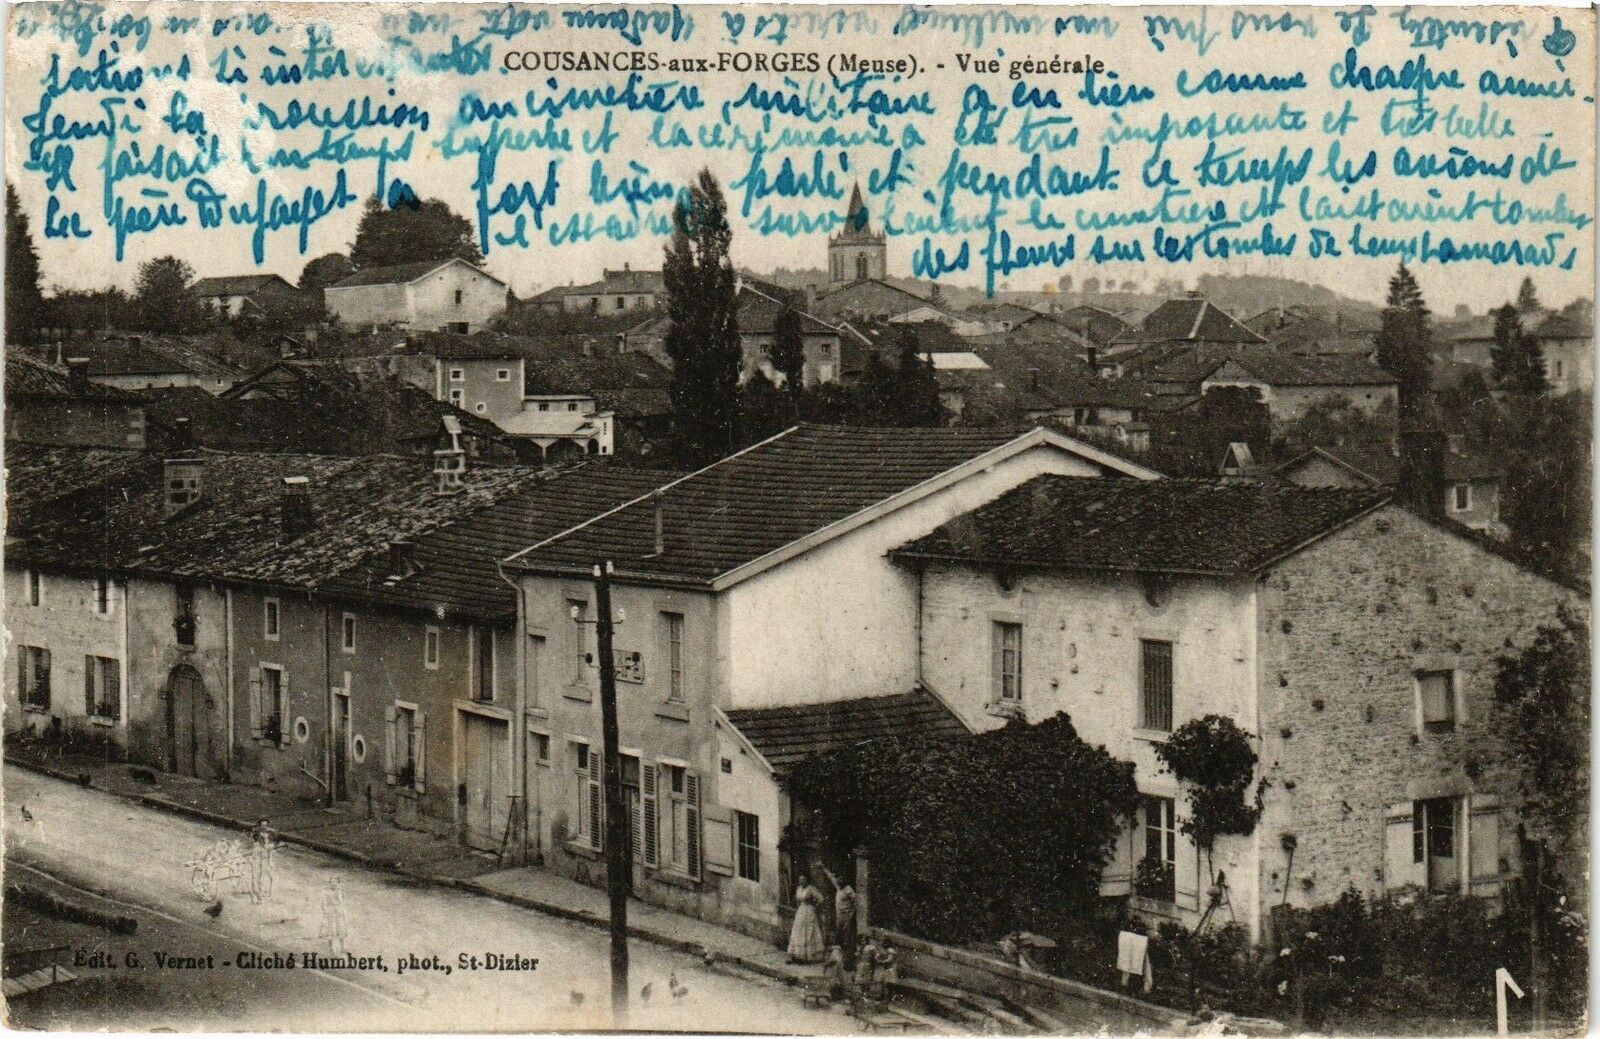 COUSANCES-aux-FORGES (Meuse). - Vue générale
sations si intéressantes.
Jeudi la procession au cimetière militaire a eu lieu comme chaque année.
Il faisait un temps superbe et la cérémonie a été très imposante et très belle
Le père Dufayet a fort bien parlé et pendant ce temps les avions de
survolaient le cimetière et laissaient tomber
des fleurs sur les tombes de leurs camarades
vous prie mes meilleurs respects à Madame votre
Édit. G. Vernet - Cliché Humbert, phot., St-Dizier